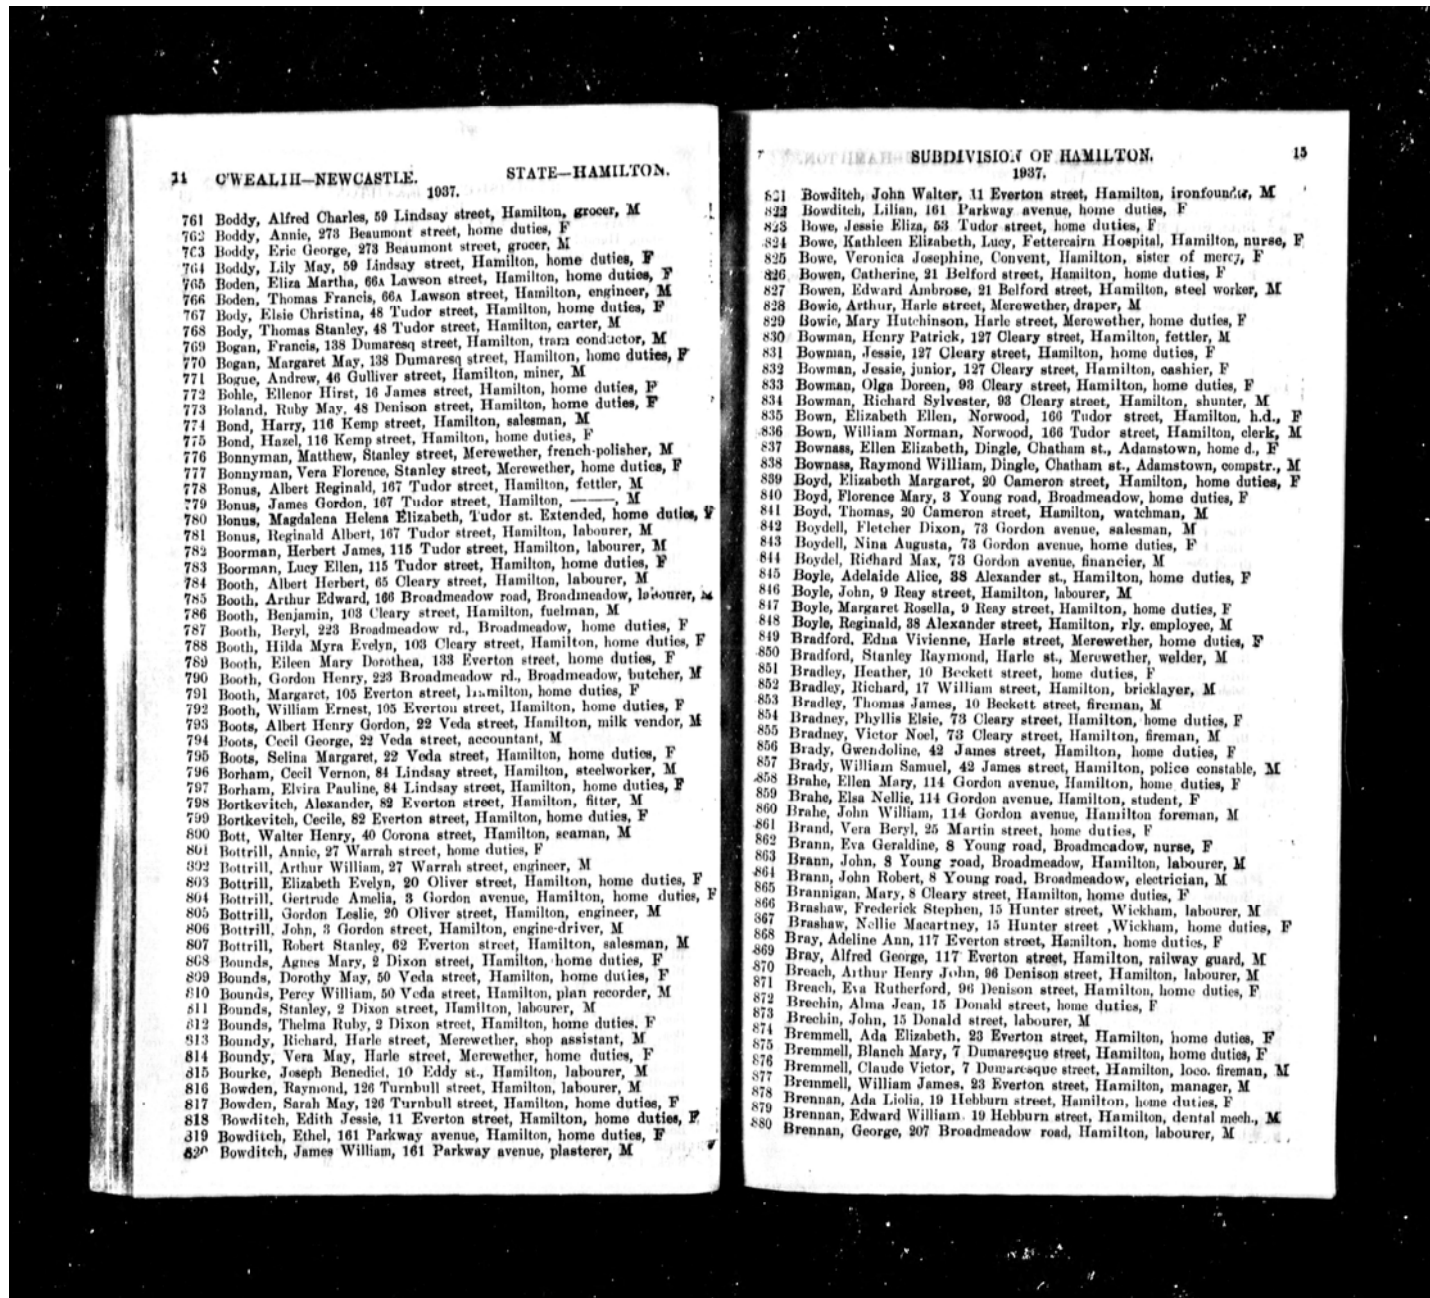 14 C'WEALTH—NEWCASTLE. STATE—HAMILTON.
1937.
761 Boddy, Alfred Charles, 59 Lindsay street, Hamilton, grocer, M
762 Boddy, Annie, 273 Beaumont street, home duties, F
763 Boddy, Eric George, 273 Beaumont street, grocer, M
764 Boddy, Lily May, 59 Lindsay street, Hamilton, home duties, F
765 Boden, Eliza Martha, 66A Lawson street, Hamilton, home duties, F
766 Boden, Thomas Francis, 66A Lawson street, Hamilton, engineer, M
767 Body, Elsie Christina, 48 Tudor street, Hamilton, home duties, F
768 Body, Thomas Stanley, 48 Tudor street, Hamilton, carter, M
769 Bogan, Francis, 138 Dumaresq street, Hamilton, tram conductor, M
770 Bogan, Margaret May, 138 Dumaresq street, Hamilton, home duties, F
771 Bogue, Andrew, 46 Gulliver street, Hamilton, miner, M
772 Bohle, Ellenor Hirst, 16 James street, Hamilton, home duties, F
773 Boland, Ruby May, 48 Denison street, Hamilton, home duties, F
774 Bond, Harry, 116 Kemp street, Hamilton, salesman, M
775 Bond, Hazel, 116 Kemp street, Hamilton, home duties, F
776 Bonnyman, Matthew, Stanley street, Merewether, french-polisher, M
777 Bonnyman, Vera Florence, Stanley street, Merewether, home duties, F
778 Bonus, Albert Reginald, 167 Tudor street, Hamilton, fettler, M
779 Bonus, James Gordon, 167 Tudor street, Hamilton, ———, M
780 Bonus, Magdalena Helena Elizabeth, Tudor st. Extended, home duties, F
781 Bonus, Reginald Albert, 167 Tudor street, Hamilton, labourer, M
782 Boorman, Herbert James, 115 Tudor street, Hamilton, labourer, M
783 Boorman, Lucy Ellen, 115 Tudor street, Hamilton, home duties, F
784 Booth, Albert Herbert, 65 Cleary street, Hamilton, labourer, M
785 Booth, Arthur Edward, 166 Broadmeadow road, Broadmeadow, labourer, M
786 Booth, Benjamin, 103 Cleary street, Hamilton, fuelman, M
787 Booth, Beryl, 223 Broadmeadow rd., Broadmeadow, home duties, F
788 Booth, Hilda Myra Evelyn, 103 Cleary street, Hamilton, home duties, F
789 Booth, Eileen Mary Dorothea, 133 Everton street, home duties, F
790 Booth, Gordon Henry, 223 Broadmeadow rd., Broadmeadow, butcher, M
791 Booth, Margaret, 105 Everton street, Hamilton, home duties, F
792 Booth, William Ernest, 105 Everton street, Hamilton, home duties, F
793 Boots, Albert Henry Gordon, 22 Veda street, Hamilton, milk vendor, M
794 Boots, Cecil George, 22 Veda street, accountant, M
795 Boots, Selina Margaret, 22 Veda street, Hamilton, home duties, F
796 Borham, Cecil Vernon, 84 Lindsay street, Hamilton, steelworker, M
797 Borham, Elvira Pauline, 84 Lindsay street, Hamilton, home duties, F
798 Bortkevitch, Alexander, 82 Everton street, Hamilton, fitter, M
799 Bortkevitch, Cecile, 82 Everton street, Hamilton, home duties, F
800 Bott, Walter Henry, 40 Corona street, Hamilton, seaman, M
801 Bottrill, Annie, 27 Warrah street, home duties, F
802 Bottrill, Arthur William, 27 Warrah street, engineer, M
803 Bottrill, Elizabeth Evelyn, 20 Oliver street, Hamilton, home duties, F
804 Bottrill, Gertrude Amelia, 3 Gordon avenue, Hamilton, home duties, F
805 Bottrill, Gordon Leslie, 20 Oliver street, Hamilton, engineer, M
806 Bottrill, John, 3 Gordon street, Hamilton, engine-driver, M
807 Bottrill, Robert Stanley, 62 Everton street, Hamilton, salesman, M
808 Bounds, Agnes Mary, 2 Dixon street, Hamilton, home duties, F
809 Bounds, Dorothy May, 50 Veda street, Hamilton, home duties, F
810 Bounds, Percy William, 50 Veda street, Hamilton, plan recorder, M
811 Bounds, Stanley, 2 Dixon street, Hamilton, labourer, M
812 Bounds, Thelma Ruby, 2 Dixon street, Hamilton, home duties, F
813 Boundy, Richard, Harle street, Merewether, shop assistant, M
814 Boundy, Vera May, Harle street, Merewether, home duties, F
815 Bourke, Joseph Benedict, 10 Eddy st., Hamilton, labourer, M
816 Bowden, Raymond, 126 Turnbull street, Hamilton, labourer, M
817 Bowden, Sarah May, 126 Turnbull street, Hamilton, home duties, F
818 Bowditch, Edith Jessie, 11 Everton street, Hamilton, home duties, F
819 Bowditch, Ethel, 161 Parkway avenue, Hamilton, home duties, F
820 Bowditch, James William, 161 Parkway avenue, plasterer, M
SUBDIVISION OF HAMILTON. 15
1937.
821 Bowditch, John Walter, 11 Everton street, Hamilton, ironfounder, M
822 Bowditch, Lilian, 161 Parkway avenue, home duties, F
823 Bowe, Jessie Eliza, 53 Tudor street, home duties, F
824 Bowe, Kathleen Elizabeth, Lucy, Fettercairn Hospital, Hamilton, nurse, F
825 Bowe, Veronica Josephine, Convent, Hamilton, sister of mercy, F
826 Bowen, Catherine, 21 Belford street, Hamilton, home duties, F
827 Bowen, Edward Ambrose, 21 Belford street, Hamilton, steel worker, M
828 Bowie, Arthur, Harle street, Merewether, draper, M
829 Bowie, Mary Hutchinson, Harle street, Merewether, home duties, F
830 Bowman, Henry Patrick, 127 Cleary street, Hamilton, fettler, M
831 Bowman, Jessie, 127 Cleary street, Hamilton, home duties, F
832 Bowman, Jessie, junior, 127 Cleary street, Hamilton, cashier, F
833 Bowman, Olga Doreen, 93 Cleary street, Hamilton, home duties, F
834 Bowman, Richard Sylvester, 93 Cleary street, Hamilton, shunter, M
835 Bown, Elizabeth Ellen, Norwood, 166 Tudor street, Hamilton, h.d., F
836 Bown, William Norman, Norwood, 166 Tudor street, Hamilton, clerk, M
837 Bownass, Ellen Elizabeth, Dingle, Chatham st., Adamstown, home d., F
838 Bownass, Raymond William, Dingle, Chatham st., Adamstown, compstr., M
839 Boyd, Elizabeth Margaret, 20 Cameron street, Hamilton, home duties, F
840 Boyd, Florence Mary, 3 Young road, Broadmeadow, home duties, F
841 Boyd, Thomas, 20 Cameron street, Hamilton, watchman, M
842 Boydell, Fletcher Dixon, 73 Gordon avenue, salesman, M
843 Boydell, Nina Augusta, 73 Gordon avenue, home duties, F
844 Boydel, Richard Max, 73 Gordon avenue, financier, M
845 Boyle, Adelaide Alice, 38 Alexander st., Hamilton, home duties, F
846 Boyle, John, 9 Reay street, Hamilton, labourer, M
847 Boyle, Margaret Rosella, 9 Reay street, Hamilton, home duties, F
848 Boyle, Reginald, 38 Alexander street, Hamilton, rly. employee, M
849 Bradford, Edna Vivienne, Harle street, Merewether, home duties, F
850 Bradford, Stanley Raymond, Harle st., Merewether, welder, M
851 Bradley, Heather, 10 Beckett street, home duties, F
852 Bradley, Richard, 17 William street, Hamilton, bricklayer, M
853 Bradley, Thomas James, 10 Beckett street, fireman, M
854 Bradney, Phyllis Elsie, 73 Cleary street, Hamilton, home duties, F
855 Bradney, Victor Noel, 73 Cleary street, Hamilton, fireman, M
856 Brady, Gwendoline, 42 James street, Hamilton, home duties, F
857 Brady, William Samuel, 42 James street, Hamilton, police constable, M
858 Brahe, Ellen Mary, 114 Gordon avenue, Hamilton, home duties, F
859 Brahe, Elsa Nellie, 114 Gordon avenue, Hamilton, student, F
860 Brahe, John William, 114 Gordon avenue, Hamilton foreman, M
861 Brand, Vera Beryl, 25 Martin street, home duties, F
862 Brann, Eva Geraldine, 8 Young road, Broadmeadow, nurse, F
863 Brann, John, 8 Young road, Broadmeadow, Hamilton, labourer, M
864 Brann, John Robert, 8 Young road, Broadmeadow, electrician, M
865 Brannigan, Mary, 8 Cleary street, Hamilton, home duties, F
866 Brashaw, Frederick Stephen, 15 Hunter street, Wickham, labourer, M
867 Brashaw, Nellie Macartney, 15 Hunter street ,Wickham, home duties, F
868 Bray, Adeline Ann, 117 Everton street, Hamilton, home duties, F
869 Bray, Alfred George, 117 Everton street, Hamilton, railway guard, M
870 Breach, Arthur Henry John, 96 Denison street, Hamilton, labourer, M
871 Breach, Eva Rutherford, 96 Denison street, Hamilton, home duties, F
872 Brechin, Alma Jean, 15 Donald street, home duties, F
873 Brechin, John, 15 Donald street, labourer, M
874 Bremmell, Ada Elizabeth, 23 Everton street, Hamilton, home duties, F
875 Bremmell, Blanch Mary, 7 Dumaresque street, Hamilton, home duties, F
876 Bremmell, Claude Victor, 7 Dumaresque street, Hamilton, loco. fireman, M
877 Bremmell, William James, 23 Everton street, Hamilton, manager, M
878 Brennan, Ada Liolia, 19 Hebburn street, Hamilton, home duties, F
879 Brennan, Edward William, 19 Hebburn street, Hamilton, dental mech., M
880 Brennan, George, 207 Broadmeadow road, Hamilton, labourer, M